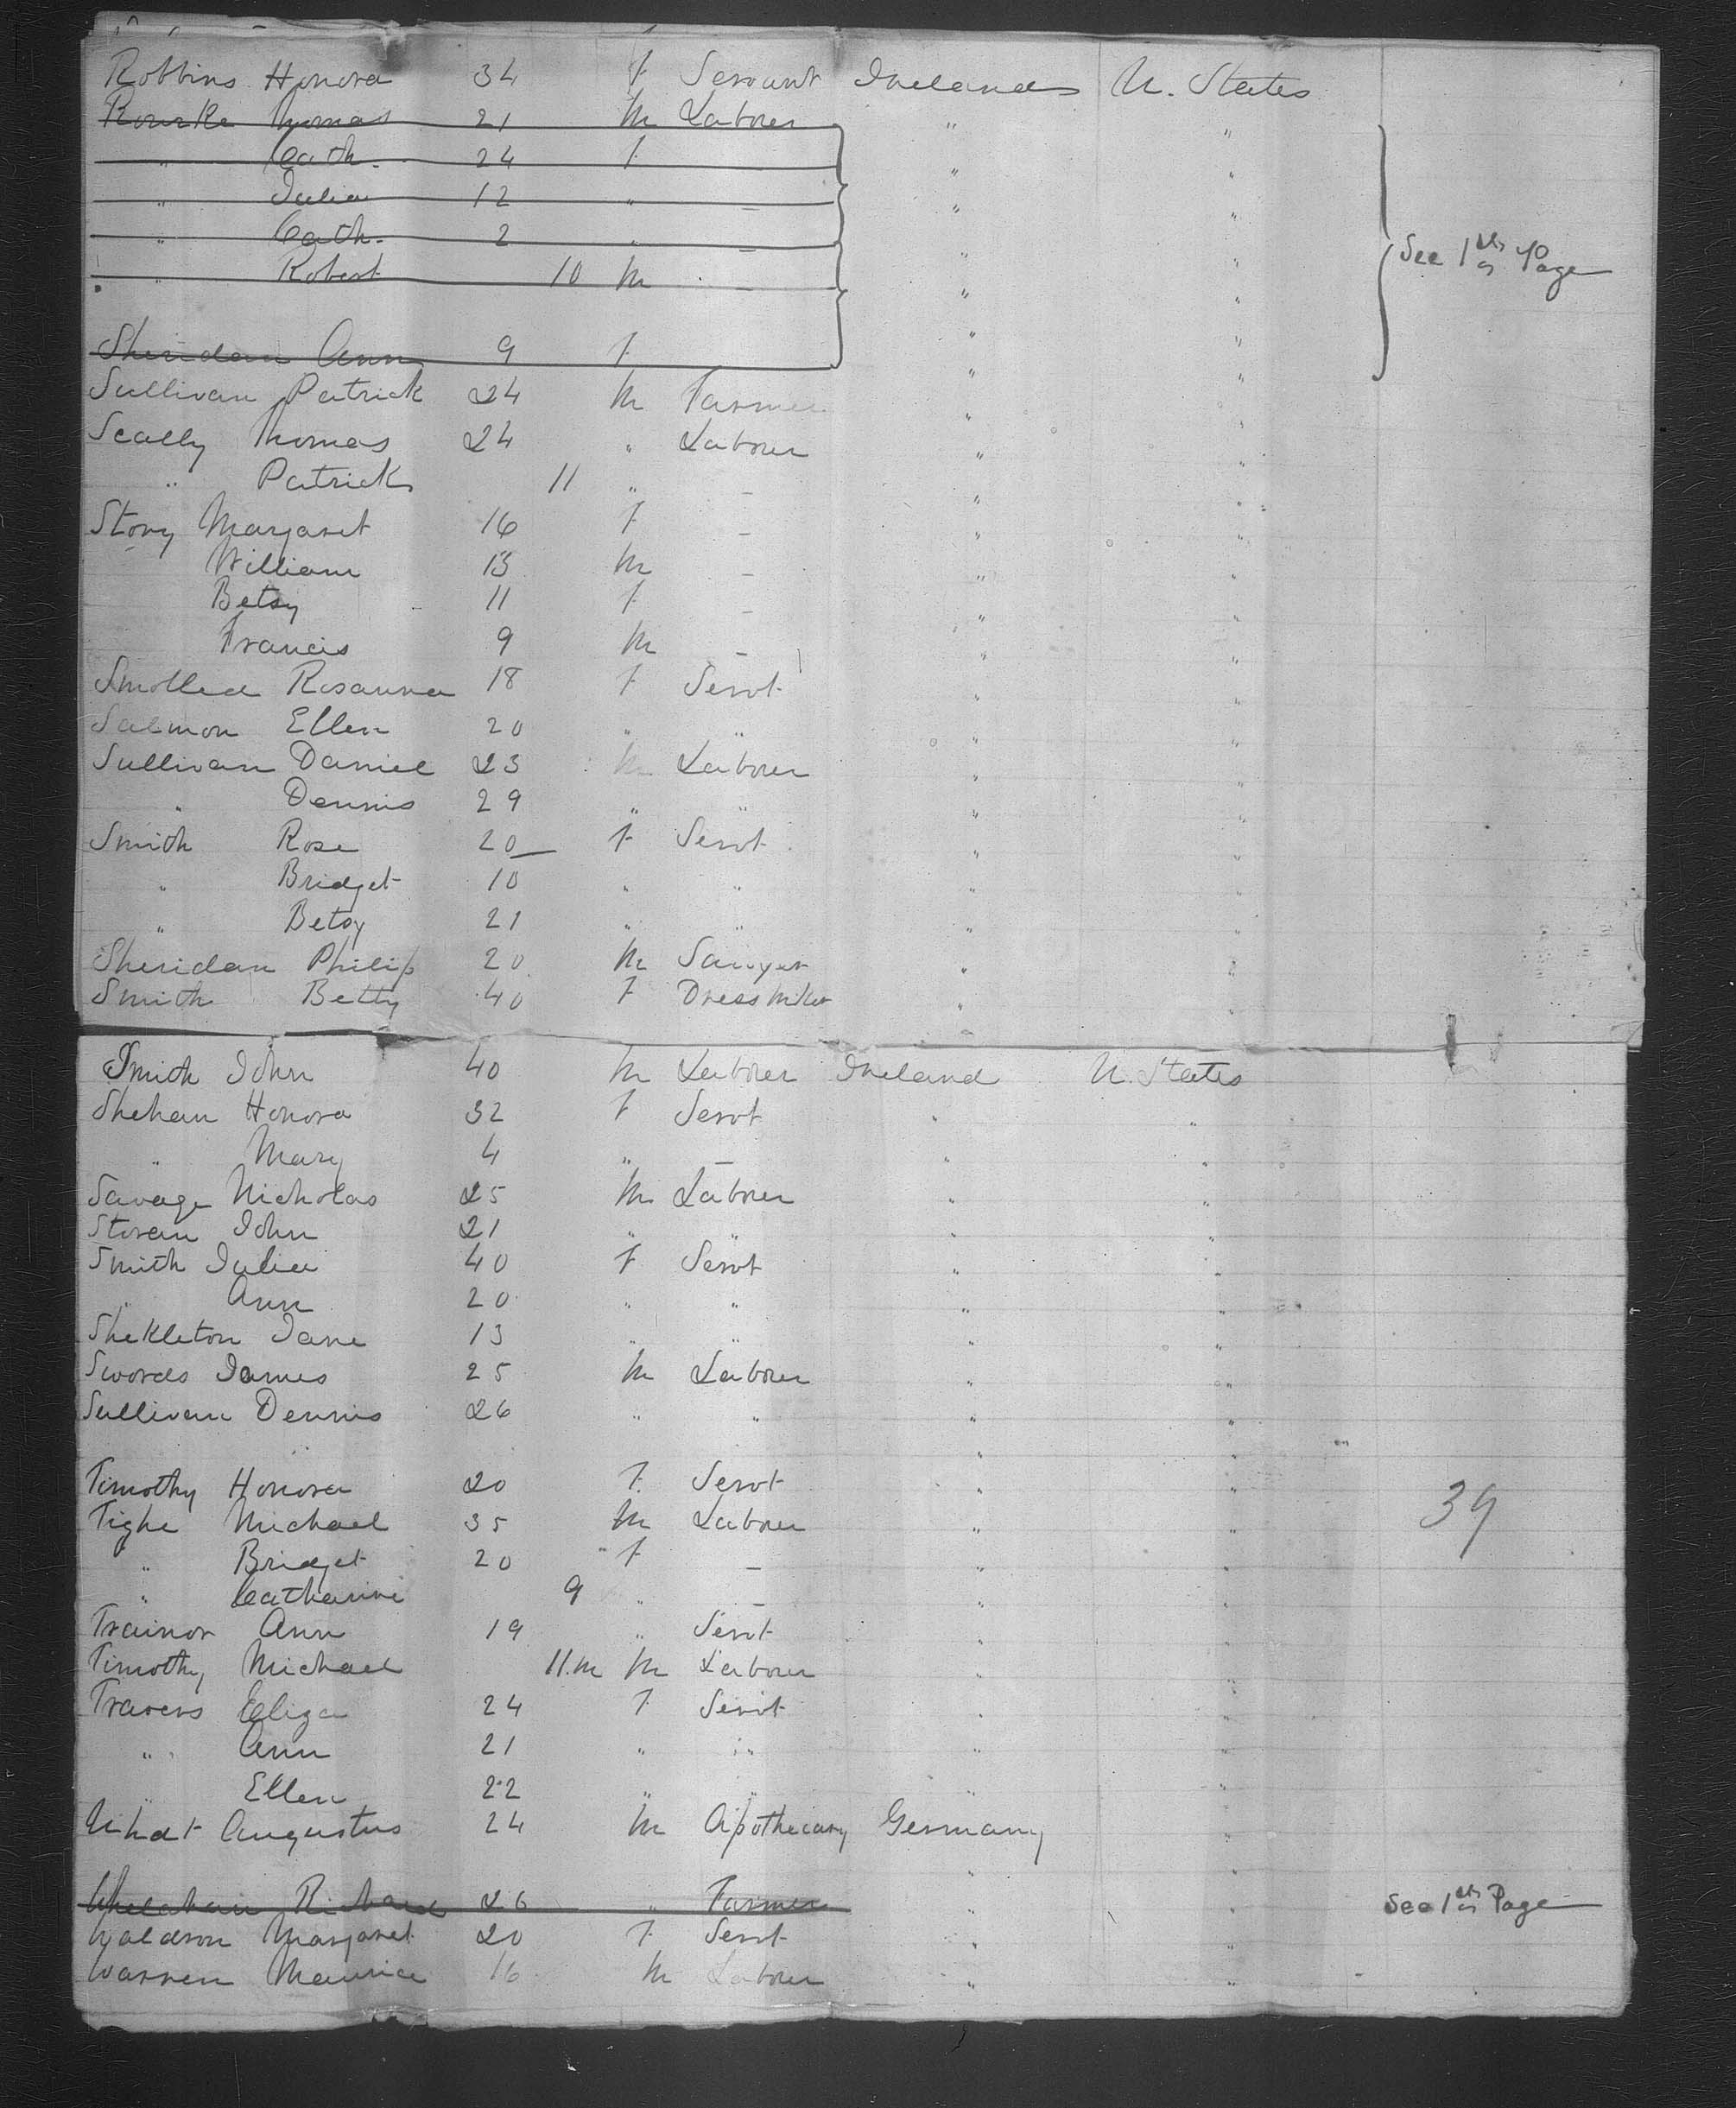 Robbins Honora 34 f Servant Ireland U. States
Rourke Thomas 21 m Laborer " "
" Cath. 24 f " "
" Julia 12 " – " "
" Cath. 2 " – " " See 1st Page
" Robert 10 m – " "
Sheridan Ann 9 f " "
Sullivan Patrick 24 m Farmer " "
Scally Thomas 24 " Laborer " "
" Patrick 11 " – " "
Story Margaret 16 f – " "
William 13 m – " "
Betsy 11 f – " "
Francis 9 m – " "
Rosanna 18 f Servt " "
Salmon Ellen 20 " " " "
Sullivan Daniel 23 m Laborer " "
" Dennis 29 " " " "
Smith Rose 20 f Servt " "
" Bridget 10 " " " "
" Betsy 21 " " " "
Sheridan Philip 20 m Sawyer " "
Smith Betty 40 f Dress mker " "
Smith John 40 m Laborer Ireland U. States
Shehan Honora 32 f Servt " "
" Mary 4 " – " "
Savage Nicholas 25 m Laborer " "
Storan John 21 " " " "
Smith Julia 40 f Servt " "
" Ann 20 " " " "
Shekleton Jane 13 " " " "
Swords James 25 m Laborer " "
Sullivan Dennis 26 " " " "
Timothy Honora 20 f Servt " "
Tighe Michael 35 m Laborer " " 39
" Bridget 20 " f – " "
" Catharine 9 " – " "
Trainor Ann 19 " Servt " "
Timothy Michael 11.m m Laborer " "
Travers Eliza 24 f Servt " "
" Ann 21 " " " "
" Ellen 22 " " " "
Uhdt Augustus 24 m Apothecary Germany "
Whelahan Richard 26 " Farmer " " See 1st Page
Waldron Margaret 20 f Servt " "
Warren Maurice 16 m Laborer " "